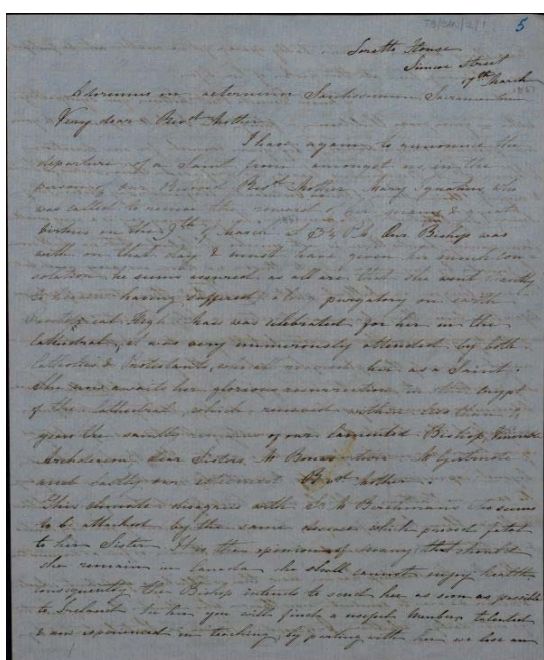 TB/CAN/2/1
5
Loretto House
Simcoe Street
17th March
1851
Adoremus in aeternum Sanctissimum Sacramentum
Very dear Revd Mother
I have again to announce the
departure of a Saint from amongst us, in the
person of our Beloved Revd Mother Mary Ignatius, who
was called to receive the reward of her many & great
virtues on the 9th of March at P.M. Our Bishop was
with on that day & must have given her much con
solation, he seems assured as all are that she went
to heaven having suffered her purgatory on earth
High Mass was celebrated for her in the
Cathedral, it was very numerously attended by both
Catholics & Protestants, who all her as a Saint.
She now awaits her glorious resurrection in the Crypt
of the Cathedral which received within less than
years the saintly remains of our lamented Bishop,
Archdeacon dear Sisters, M Bonaventure M Gertrude
and lastly our Revd Mother.
This climate disagrees with Sr M Berchmans she seems
to be attacked by the same disease which proved fatal
to her Sister. It is the opinion of many that should
she remain in Canada she cannot enjoy health
consequently the Bishop intends to send her as soon as possible
to Ireland. In her you will find a useful Member talented
& experienced in teaching, by parting with her we lose an